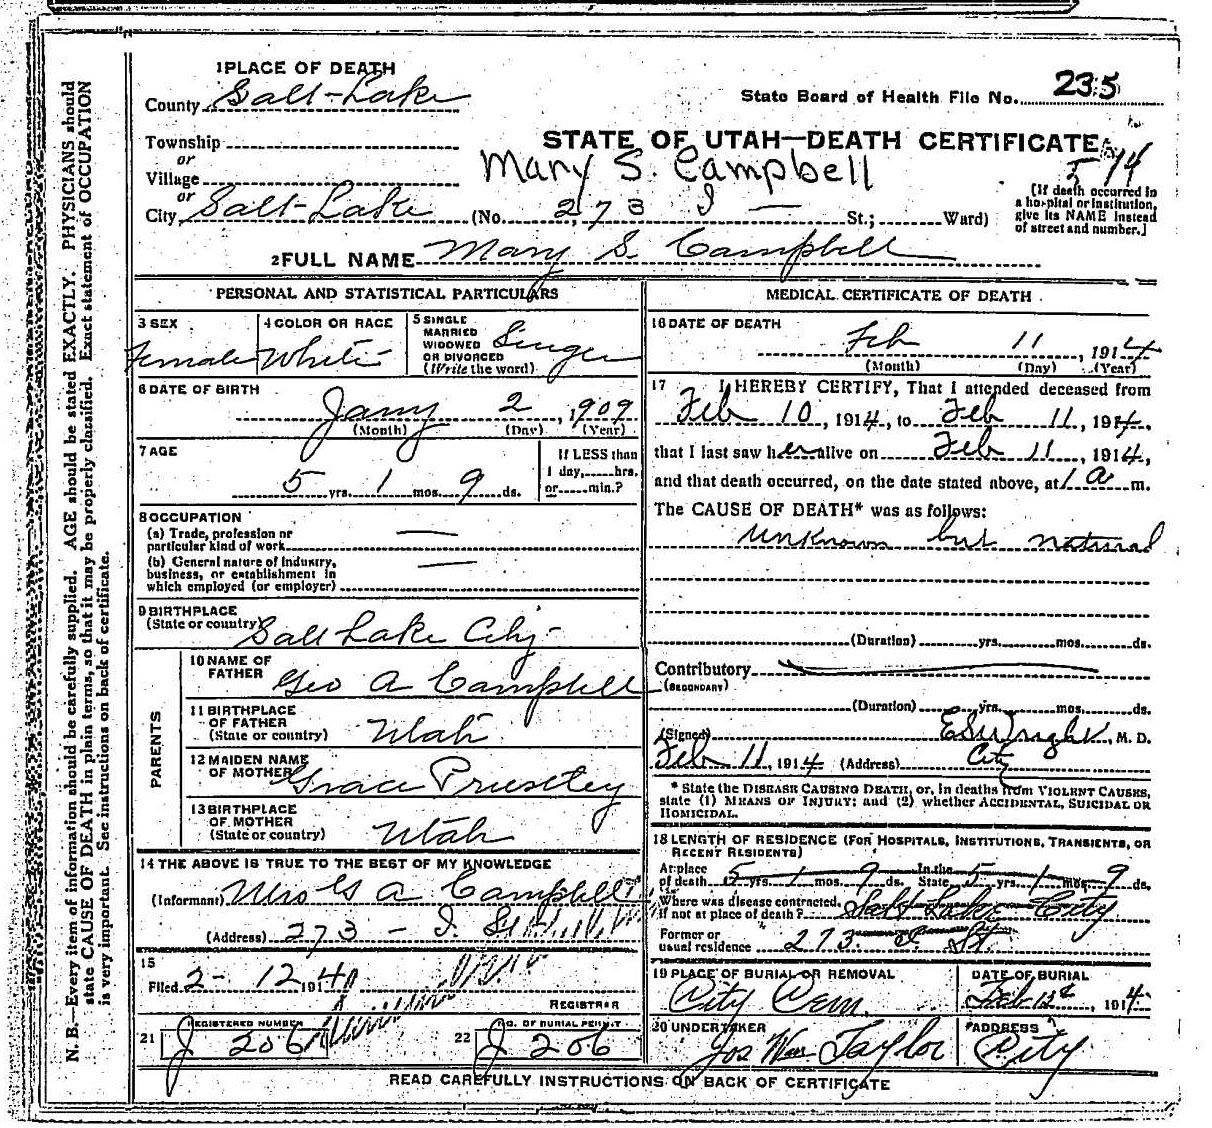 1 PLACE OF DEATH
County Salt-Lake
State Board of Health File No. 235
Township
or
Village
or
STATE OF UTAH—DEATH CERTIFICATE
Mary S. Campbell
514
City Salt-Lake (No. 273 I — St.; Ward)
[If death occurred in
a hospital or institution,
give its NAME instead
of street and number.]
2 FULL NAME Mary S. Campbell
PERSONAL AND STATISTICAL PARTICULARS
3 SEX
Female
4 COLOR OR RACE
White
5 SINGLE
MARRIED
WIDOWED
OR DIVORCED
(Write the word)
6 DATE OF BIRTH
Jany 2, 1909
(Month) (Day) (Year)
7 AGE
5 yrs. 1 mos. 9 ds.
If LESS than
1 day,......hrs.
or......min.?
8 OCCUPATION
(a) Trade, profession or
particular kind of work —
(b) General nature of Industry,
business, or establishment in
which employed (or employer) —
9 BIRTHPLACE
(State or country) Salt Lake City
PARENTS
10 NAME OF
FATHER Geo A Campbell
11 BIRTHPLACE
OF FATHER
(State or country) Utah
12 MAIDEN NAME
OF MOTHER Grace Priestley
13 BIRTHPLACE
OF MOTHER
(State or country) Utah
14 THE ABOVE IS TRUE TO THE BEST OF MY KNOWLEDGE
(Informant) Mrs G A Campbell
(Address) 273 - I. St
15
Filed 2-12 1914
REGISTRAR
21 REGISTERED NUMBER
J 206
22 NO. OF BURIAL PERMIT
J 206
MEDICAL CERTIFICATE OF DEATH
16 DATE OF DEATH
Feb 11, 1914
(Month) (Day) (Year)
17 I HEREBY CERTIFY, That I attended deceased from
Feb 10, 1914, to Feb 11, 1914,
that I last saw her alive on Feb 11, 1914,
and that death occurred, on the date stated above, at 1 a m.
The CAUSE OF DEATH* was as follows:
Unknown but natural
(Duration) yrs. mos. ds.
Contributory
(SECONDARY)
(Duration) yrs. mos. ds.
(Signed) E S Wright, M. D.
Feb 11, 1914 (Address) City
* State the DISEASE CAUSING DEATH, or, in deaths from VIOLENT CAUSES,
state (1) MEANS OF INJURY; and (2) whether ACCIDENTAL, SUICIDAL OR
HOMICIDAL.
18 LENGTH OF RESIDENCE (FOR HOSPITALS, INSTITUTIONS, TRANSIENTS, OR
RECENT RESIDENTS)
At place In the
of death 5 yrs. 1 mos. 9 ds. State 5 yrs. 1 mos. 9 ds.
Where was disease contracted,
if not at place of death? Salt Lake City
Former or
usual residence 273 I St
19 PLACE OF BURIAL OR REMOVAL
City Cem.
DATE OF BURIAL
Feb 12th 1914
20 UNDERTAKER
Jos Wm Taylor
ADDRESS
City
READ CAREFULLY INSTRUCTIONS ON BACK OF CERTIFICATE
N. B.—Every item of information should be carefully supplied. AGE should be stated EXACTLY. PHYSICIANS should
state CAUSE OF DEATH in plain terms, so that it may be properly classified. Exact statement of OCCUPATION
is very important. See instructions on back of certificate.